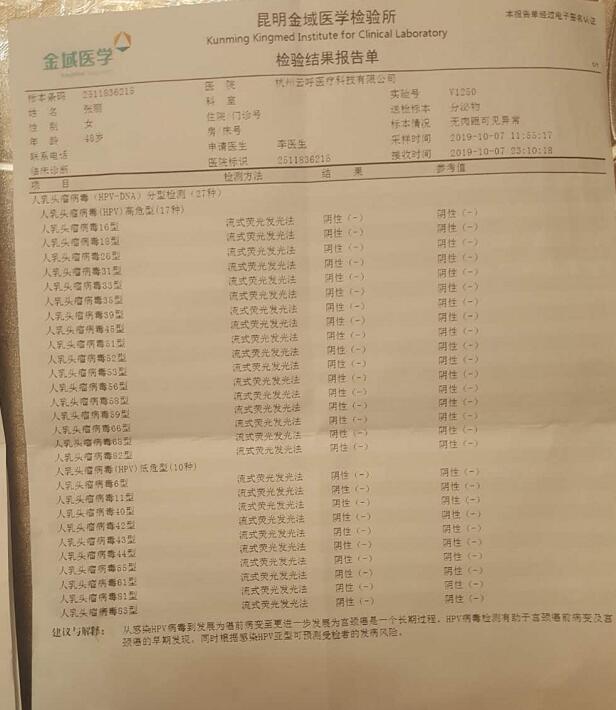 昆明金域医学检验所
Kunming Kingmed Institute for Clinical Laboratory
检验结果报告单
本报告单经过电子签名认证
金域医学
标本条码 2511836215 医 院 杭州云呼医疗科技有限公司 实验号 V1250
姓 名 张丽 科 室 送检标本 分泌物
性 别 女 住院/门诊号 标本情况 无肉眼可见异常
年 龄 48岁 房/床号 采样时间 2019-10-07 11:55:17
联系电话 申请医生 李医生 接收时间 2019-10-07 23:10:18
临床诊断 医院标识 2511836215
项 目 检测方法 结 果 参考值
人乳头瘤病毒(HPV-DNA)分型检测(27种)
人乳头瘤病毒(HPV)高危型(17种)
人乳头瘤病毒16型 流式荧光发光法 阴性(-) 阴性(-)
人乳头瘤病毒18型 流式荧光发光法 阴性(-) 阴性(-)
人乳头瘤病毒26型 流式荧光发光法 阴性(-) 阴性(-)
人乳头瘤病毒31型 流式荧光发光法 阴性(-) 阴性(-)
人乳头瘤病毒33型 流式荧光发光法 阴性(-) 阴性(-)
人乳头瘤病毒35型 流式荧光发光法 阴性(-) 阴性(-)
人乳头瘤病毒39型 流式荧光发光法 阴性(-) 阴性(-)
人乳头瘤病毒45型 流式荧光发光法 阴性(-) 阴性(-)
人乳头瘤病毒51型 流式荧光发光法 阴性(-) 阴性(-)
人乳头瘤病毒52型 流式荧光发光法 阴性(-) 阴性(-)
人乳头瘤病毒53型 流式荧光发光法 阴性(-) 阴性(-)
人乳头瘤病毒56型 流式荧光发光法 阴性(-) 阴性(-)
人乳头瘤病毒58型 流式荧光发光法 阴性(-) 阴性(-)
人乳头瘤病毒59型 流式荧光发光法 阴性(-) 阴性(-)
人乳头瘤病毒66型 流式荧光发光法 阴性(-) 阴性(-)
人乳头瘤病毒68型 流式荧光发光法 阴性(-) 阴性(-)
人乳头瘤病毒82型 流式荧光发光法 阴性(-) 阴性(-)
人乳头瘤病毒(HPV)低危型(10种)
人乳头瘤病毒6型 流式荧光发光法 阴性(-) 阴性(-)
人乳头瘤病毒11型 流式荧光发光法 阴性(-) 阴性(-)
人乳头瘤病毒40型 流式荧光发光法 阴性(-) 阴性(-)
人乳头瘤病毒42型 流式荧光发光法 阴性(-) 阴性(-)
人乳头瘤病毒43型 流式荧光发光法 阴性(-) 阴性(-)
人乳头瘤病毒44型 流式荧光发光法 阴性(-) 阴性(-)
人乳头瘤病毒55型 流式荧光发光法 阴性(-) 阴性(-)
人乳头瘤病毒61型 流式荧光发光法 阴性(-) 阴性(-)
人乳头瘤病毒81型 流式荧光发光法 阴性(-) 阴性(-)
人乳头瘤病毒83型 流式荧光发光法 阴性(-) 阴性(-)
建议与解释: 从感染HPV病毒到发展为癌前病变至更进一步发展为宫颈癌是一个长期过程。HPV病毒检测有助于宫颈癌前病变及宫
颈癌的早期发现。同时根据感染HPV亚型可预测受检者的发病风险。